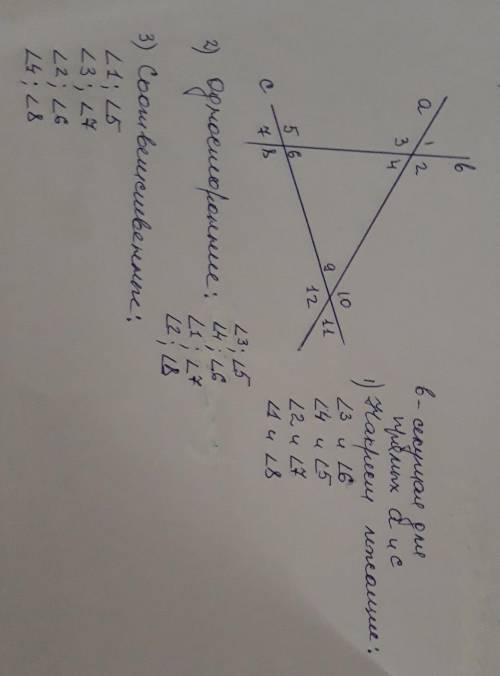 в - секущая для
прямых а и с
1) Накрест лежащие:
∠3 и ∠6
∠4 и ∠5
∠2 и ∠7
∠1 и ∠8
в
а
1
2
3
4
с
5
6
7
8
9
10
11
12
2) Односторонние: ∠3; ∠5
∠4; ∠6
∠1; ∠7
∠2; ∠8
3) Соответственные:
∠1; ∠5
∠3; ∠7
∠2; ∠6
∠4; ∠8